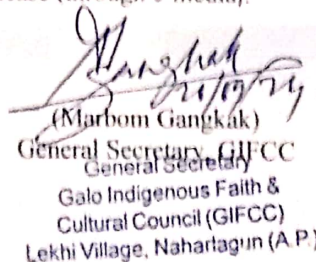 (Marbom Gangkak)
General Secretary, GIFCC
General Secretary
Galo Indigenous Faith &
Cultural Council (GIFCC)
Lekhi Village, Naharlagun (A.P.)